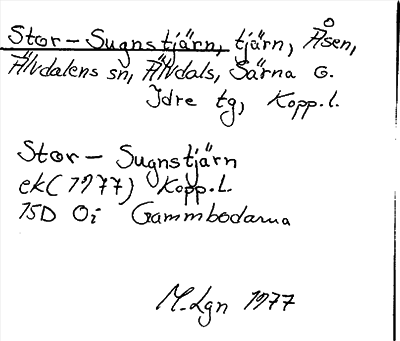 Stor-Sugnstjärn, tjärn, Åsen,
Älvdalens sn, Älvdals, Särna o.
Idre tg, Kopp.l.
Stor-Sugnstjärn
ek (1977) Kopp.l.
15D 0i Gammbodarna
M.Lgn 1977